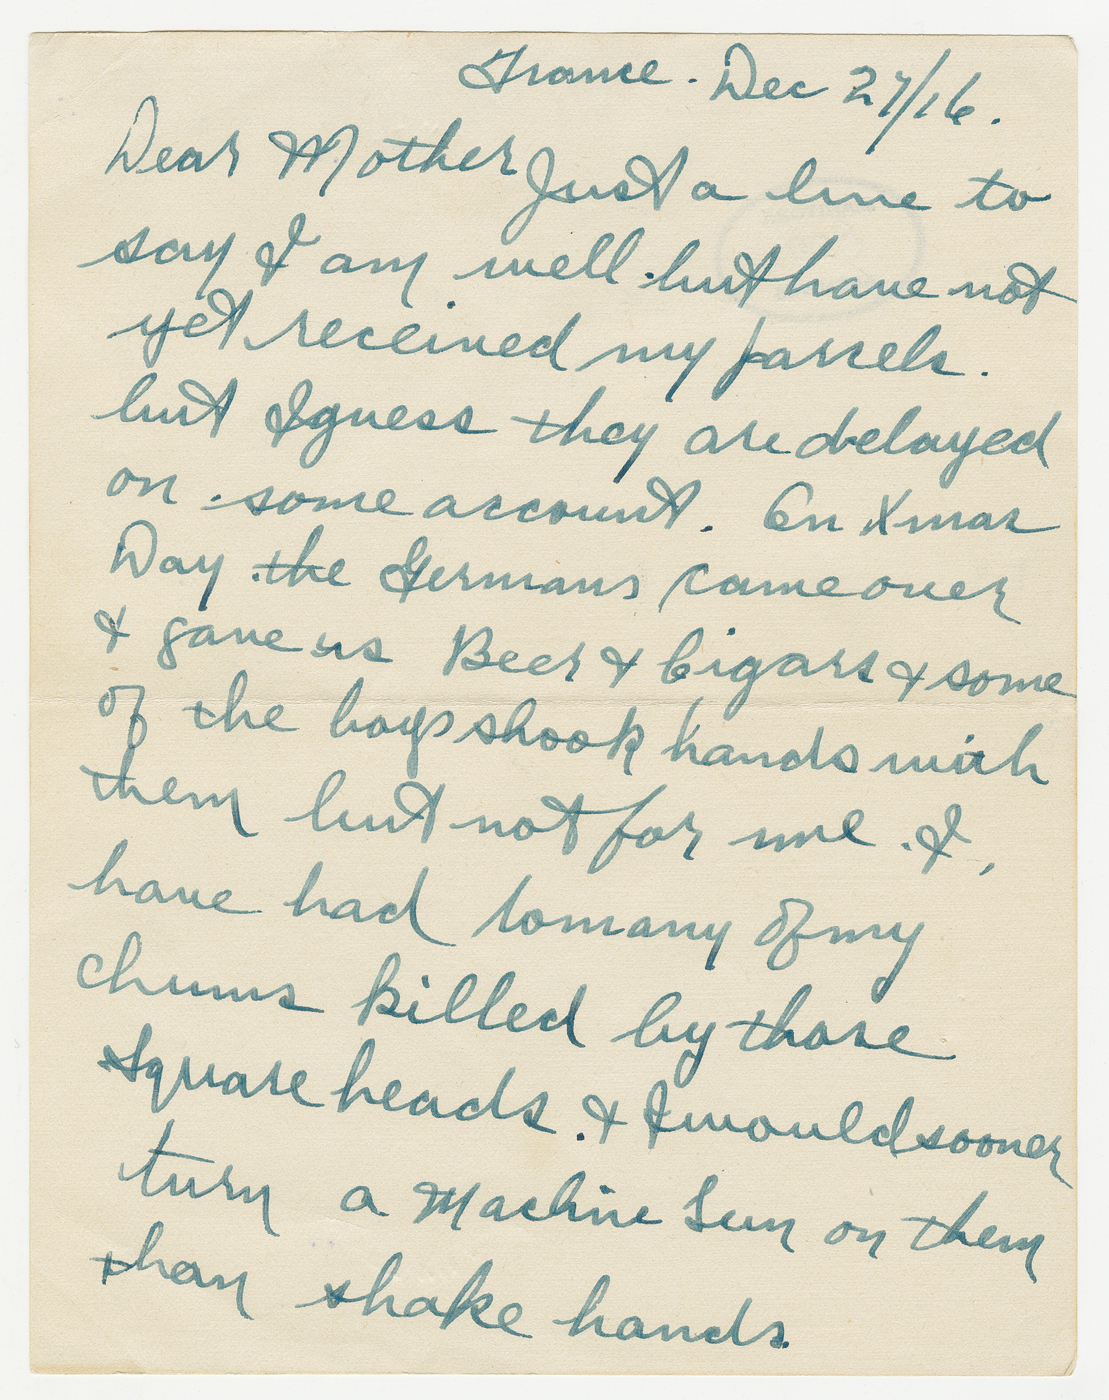 France. Dec 27/16.
Dear Mother Just a line to
say I am well but have not
yet received my parcels.
but I guess they are delayed
on some account. On Xmas
Day the Germans came over
& gave us Beer & Cigars & some
of the boys shook hands with
them but not for me. I,
have had to many of my
chums killed by those
Square heads. & I would sooner
turn a Machine Gun on them
than shake hands.